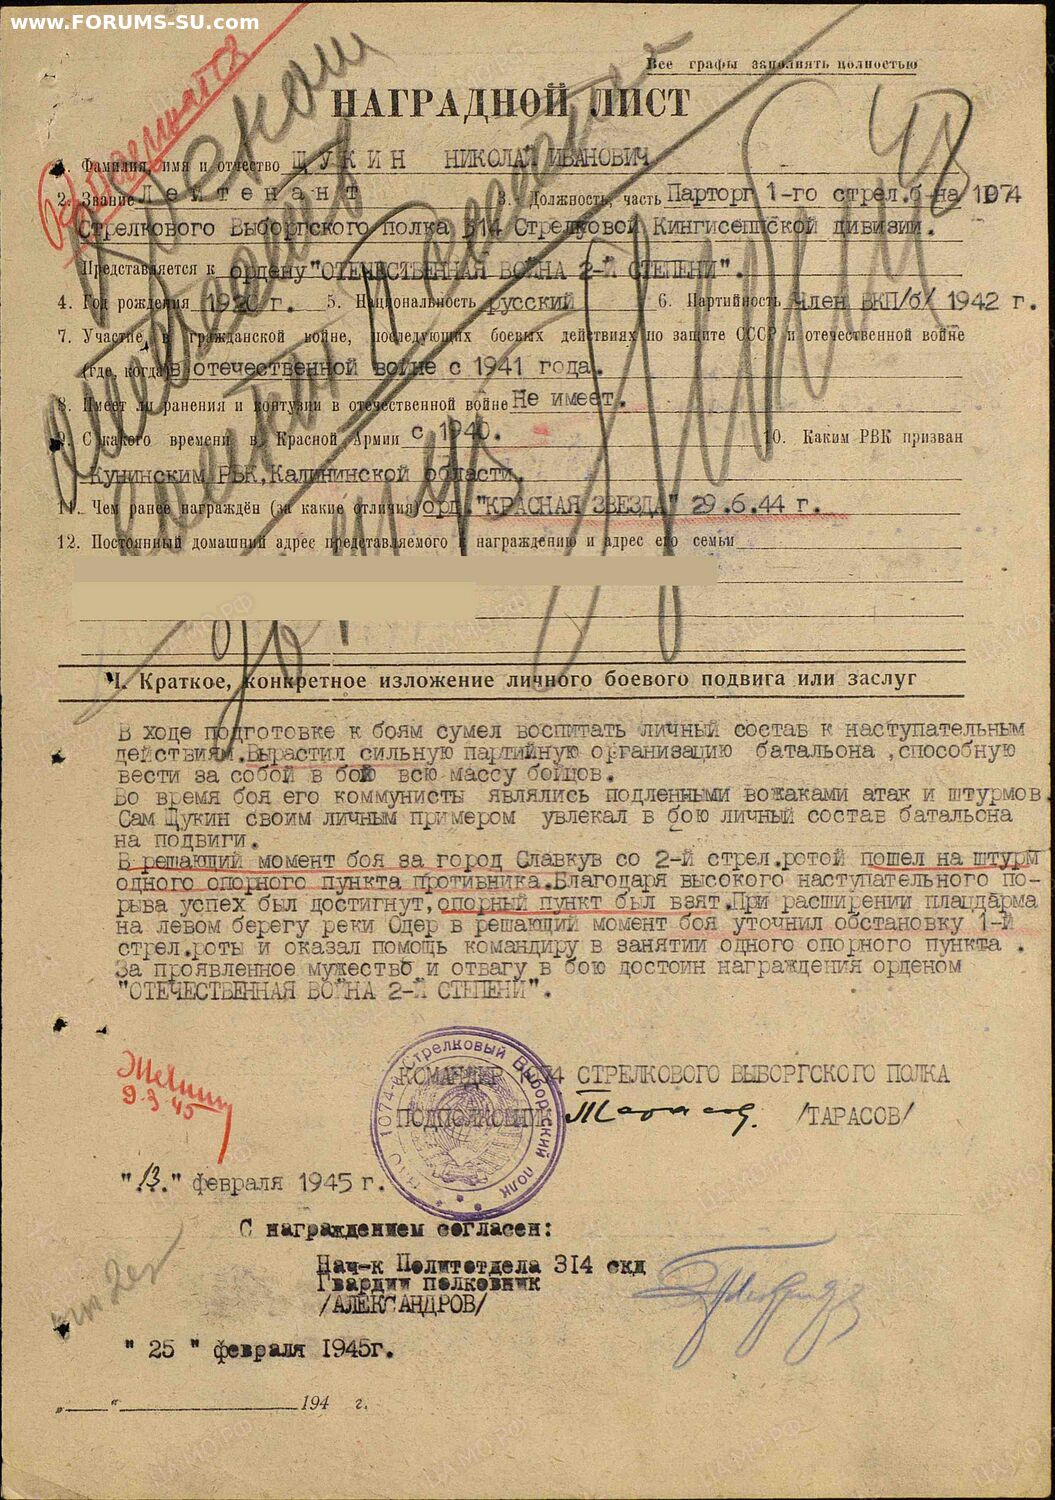 www.FORUMS-SU.com
Все графы заполнять полностью
НАГРАДНОЙ ЛИСТ
1. Фамилия, имя и отчество ЩУКИН НИКОЛАЙ ИВАНОВИЧ
2. Звание Лейтенант 3. Должность, часть Парторг 1-го стрел.б-на 1074
Стрелкового Выборгского полка 314 Стрелковой Кингисеппской дивизии.
Представляется к ордену "ОТЕЧЕСТВЕННАЯ ВОЙНА 2-Й СТЕПЕНИ".
4. Год рождения 1920 г. 5. Национальность русский 6. Партийность Член ВКП/б/ 1942 г.
7. Участие в гражданской войне, последующих боевых действиях по защите СССР и отечественной войне
(где, когда) в отечественной войне с 1941 года.
8. Имеет ли ранения и контузии в отечественной войне Не имеет.
9. С какого времени в Красной Армии с 1940. 10. Каким РВК призван
Кунинским РВК, Калининской области.
11. Чем ранее награждён (за какие отличия) орд. "КРАСНАЯ ЗВЕЗДА" 29.6.44 г.
12. Постоянный домашний адрес представляемого к награждению и адрес его семьи
1. Краткое, конкретное изложение личного боевого подвига или заслуг
В ходе подготовке к боям сумел воспитать личный состав к наступательным
действиям. Вырастил сильную партийную организацию батальона ,способную
вести за собой в бою всю массу бойцов.
Во время боя его коммунисты являлись подленными вожаками атак и штурмов.
Сам Щукин своим личным примером увлекал в бою личный состав батальона
на подвиги.
В решающий момент боя за город Славкув со 2-й стрел.ротой пошел на штурм
одного опорного пункта противника.Благодаря высокого наступательного по-
рыва успех был достигнут, опорный пункт был взят.При расширении плацдарма
на левом берегу реки Одер в решающий момент боя уточнил обстановку 1-й
стрел.роты и оказал помощь командиру в занятии одного опорного пункта .
За проявленное мужество и отвагу в бою достоин награждения орденом
"ОТЕЧЕСТВЕННАЯ ВОЙНА 2-Й СТЕПЕНИ".
9.3.45
1074 Стрелковый Выборгский полк
КОМАНДИР 1074 СТРЕЛКОВОГО ВЫБОРГСКОГО ПОЛКА
ПОДПОЛКОВНИК Тарасов. /ТАРАСОВ/
"13." февраля 1945 г.
С награждением согласен:
Нач-к Политотдела 314 скд
Гвардии полковник
/АЛЕКСАНДРОВ/
" 25 " февраля 1945г.
„ “ 194 г.